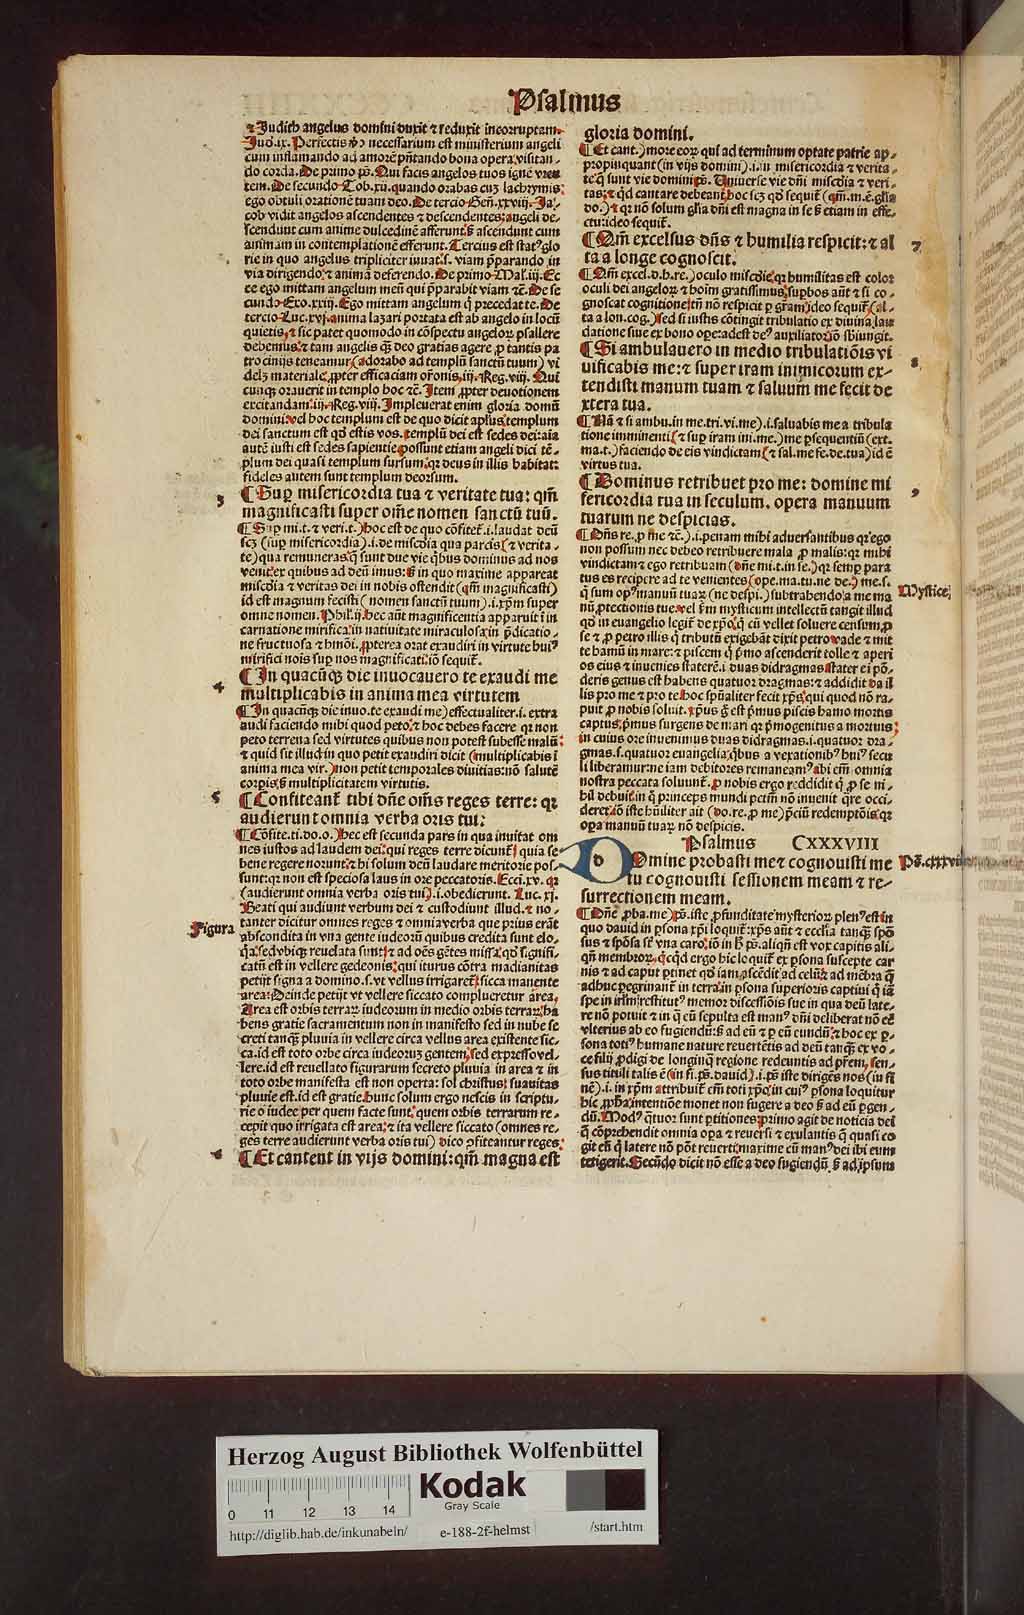 Psalmus
⁊ Judith angelus domini duxit ⁊ reduxit incorruptam.
cum inflamando ad amorē p̄ntando bona opera visitan-
do corda. De primo ps. Qui facis angelos tuos ignē vren
tem. De secundo Tob. xij. quando orabas cuz lachrymis:
ego obtuli orationē tuam deo. De tercio Gen̄. xxviij. Ja-
cob vidit angelos ascendentes ⁊ descendentes: angeli de-
scendunt cum anime dulcedinē afferunt: ascendunt cum
animam in contemplationē efferunt. Tercius est stat⁹ glo
rie in quo angelus tripliciter iuuat. s. viam p̄parando in
via dirigendo: ⁊ animā deferendo. De primo Mal. iij. Ec
ce ego mittam angelum meū qui p̄parabit viam ⁊c̄. De se
cundo Exo. xxiij. Ego mittam angelum q̄ precedat te. De
tercio Luc. xvj. anima lazari portata est ab angelo in locū
quietis, ⁊ sic patet quomodo in cōspectu angeloꝝ psallere
debemus: ⁊ tam angelis qꝫ deo gratias agere ꝓ tantis pa
trocinijs teneamur (adorabo ad templū sanctū tuum) vi
delꝫ materiale, ꝓpter efficaciam or̄onis, iij. Reg. viij. Qui
cunqꝫ orauerit in templo hoc ⁊c̄. Item ꝓpter deuotionem
excitandam: iij. Reg. viij. Impleuerat enim gloria domū
domini: vel hoc templum est de quo dicit apl̄us templum
dei sanctum est qd̄ estis vos. templū dei est sedes dei: aīa
autē iusti est sedes sapientie possunt etiam angeli dici tē-
plum dei quasi templum sursum: qꝛ deus in illis habitat:
fideles autem sunt templum deorsum.
3 ¶ Suꝑ misericordia tua ⁊ veritate tua: qm̄
magnificasti super om̄e nomen sanctū tuū.
¶ Suꝑ mi. t. ⁊ veri. t.) hoc est de quo cōfitet̄. i. laudat deū
scꝫ (suꝑ misericordia) .i. de miscdīa qua parcis (⁊ verita-
te) qua remuneras: q̄ sunt due vie qbus dominus ad nos
venit: ex quibus ad deū imus: in quo maxime appareat
miscdīa ⁊ veritas dei in nobis ostendit (qm̄ magnificasti)
id est magnum fecisti (nomen sanctū tuum) .i. xp̄m super
omne nomen. Phil. ij. hec aūt magnificentia apparuit ī in
carnatione mirifica: in natiuitate miraculosa: in p̄dicatio-
ne fructuosa ⁊ hmōi. ꝓpterea orat exaudiri in virtute hui⁹
mirifici nois suꝑ nos magnificati: iō sequit̄.
4 ¶ In quacūqꝫ die inuocauero te exaudi me
multiplicabis in anima mea virtutem
¶ In quacūqꝫ die inuo. te exaudi me) effectualiter. i. extra
audi faciendo mihi quod peto: ⁊ hoc debes facere qꝛ non
peto terrena sed virtutes quibus non potest subesse malū:
⁊ quid sit illud in quo petit exaudiri dicit (multiplicabis ī
anima mea vir.) non petit temporales diuitias: nō salutē
corꝑis, multiplicitatem virtutis.
5 ¶ Confiteant̄ tibi dn̄e om̄s reges terre: qꝛ
audierunt omnia verba oris tui:
¶ Cōfite. ti. do. o.) hec est secunda pars in qua inuitat om
nes iustos ad laudem dei: qui reges terre dicunt̄ quia se
bene regere norunt: ⁊ hi solum deū laudare meritorie pos-
sunt: qꝛ non est speciosa laus in ore peccatoris. Ecci. xv. qꝛ
(audierunt omnia verba oris tui) .i. obedierunt. Luc. xj.
Beati qui audiunt verbum dei ⁊ custodiunt illud. ⁊ no-
tanter dicitur omnes reges ⁊ omnia verba que prius erāt
Figura
abscondita in vna gente iudeorū quibus credita sunt elo-
catū est in vellere gedeonis: qui iturus cōtra madianitas
petijt signa a domino. s. vt vellus irrigaret̄ sicca manente
area: Deinde petijt vt vellere siccato complueretur area,
Area est orbis terrarꝫ iudeorum in medio orbis terrarꝫ ha
bens gratie sacramentum non in manifesto sed in nube se
creti tanqꝫ pluuia in vellere circa vellus area existente sic-
ca. id est toto orbe circa iudeoruz gentem, sed expresso vel-
lere. id est reuellato figurarum secreto pluuia in area ⁊ in
toto orbe manifesta est non operta: sol christus: suauitas
pluuie est. id est gratie. hunc solum ergo nescis in scriptu-
rie o iudee per quem facte sunt: quem orbis terrarum re-
cepit quo irrigata est area: ⁊ ita vellere siccato (omnes re-
ges terre audierunt verba oris tui) dico ꝯfiteantur reges:
6 ¶ Et cantent in vijs domini: qm̄ magna est
gloria domini.
¶ Et cant.) more eoꝝ qui ad terminum optate patrie ap-
propinquant (in vijs domini) .i. in misericordia ⁊ verita-
te q̄ sunt vie domini ps. Uniuerse vie dn̄i miscdīa ⁊ veri-
tas: ⁊ qd̄ cantare debeant, hoc scꝫ qd̄ sequit̄ (qm̄. m. ē. gl̄ia
do.) ⁊ qꝛ nō solum gl̄ia dn̄i est magna in se etiam in effe-
ctu: ideo sequit̄.
7 ¶ Qm̄ excelsus dn̄s ⁊ humilia respicit: ⁊ al
ta a longe cognoscit.
¶ Qm̄ excel. d. h. re.) oculo miscdīe, qꝛ humilitas est color
oculi dei angeloꝝ ⁊ hoīm gratissimus, suꝑbos aūt ⁊ si co-
gnoscat cognitione, tn̄ nō respicit ꝑ gr̄am: ideo sequit̄, (al-
ta a lon. cog.) sed si iustis cōtingit tribulatio ex diuina lau
datione siue ex bono oꝑe: adest de⁹ auxiliator: iō sbiungit.
8 ¶ Si ambulauero in medio tribulatiōis vi
uificabis me: ⁊ super iram inimicorum ex-
tendisti manum tuam ⁊ saluum me fecit de
xtera tua.
¶ Nā ⁊ si ambu. in me. tri. vi. me) .i. saluabis me a tribula
tione imminenti (⁊ suꝑ iram ini. me.) me ꝑsequentiū (ext.
ma. t.) faciendo de eis vindictam (⁊ sal. me fe. de. tua) id ē
virtus tua.
9 ¶ Dominus retribuet pro me: domine mi
sericordia tua in seculum. opera manuum
tuarum ne despicias.
¶ Dn̄s re. ꝑ me ⁊c̄.) .i. penam mihi aduersantibus qꝛ ego
non possum nec debeo retribuere mala ꝓ malis: qꝛ mihi
vindictam ⁊ ego retribuam (dn̄e mi. t. in se.) qꝛ semꝑ para
tus es recipere ad te venientes (ope. ma. tu. ne de.) me. s.
q̄ sum op⁹ manuū tuaꝝ (ne despi.) subtrahendo a me ma
Mystice
nū ꝓtectionis tue. vel s̄m mysticum intellectū tangit illud
qd̄ in euangelio legit̄ de xp̄o, q̄ cū vellet soluere censum ꝓ
se ⁊ ꝓ petro illis q̄ tributū exigebāt dixit petro vade ⁊ mit
te hamū in mare: ⁊ piscem q̄ p̄mo ascenderit tolle ⁊ aperi
os eius ⁊ inuenies staterē. i. duas didragmas stater ei pō-
deris genus est habens quatuor dragmas: ⁊ addidit da il
lis pro me ⁊ pro te hoc spūaliter fecit xp̄s, qui quod nō ra-
puit ꝓ nobis soluit. xp̄us est p̄mus piscis hamo mortis
captus, p̄mus surgens de mari qꝛ p̄mogenitus a mortuis:
in cuius ore inuenimus duas didragmas. i. quatuor dra-
gmas. s. quatuor euangelia, qbus a vexationib⁹ hui⁹ secu
li liberamur: ne iam debitores remaneam⁹ vbi em̄ omnia
nostra peccata soluunt̄. ꝓ nobis ergo reddidit q̄ ꝓ se ni-
hil debuit: in q̄ princeps mundi petm̄ nō inuenit q̄re occi-
deret: iō iste hūiliter ait (do. re. ꝓ me) p̄ciū redemptōis: qꝛ
opa manuū tuaꝝ nō despicis.
Psalmus CXXXVIII
Domine probasti me ⁊ cognouisti me
Ps. cxxxviij
tu cognouisti sessionem meam ⁊ re-
surrectionem meam.
¶ Dn̄e ꝓba. me) ps. iste ꝓfunditate mysterioꝝ plen⁹ est in
quo dauid in ꝑsona xp̄i loquit̄: xp̄s aūt ⁊ ecclīa tanqꝫ spō
sus ⁊ spōsa sūt vna caro: iō in h̄ ps. aliqn̄ est vox capitis ali-
qn̄ membroꝝ, q̄cqd ergo hic loquit̄ ex ꝑsona suscepte car
nis ⁊ ad caput ꝑtinet qd̄ iam ascēdit ad celū: ⁊ ad mēbra q̄
adhuc ꝑegrinant̄ in terra: in ꝑsona superioris captiui q̄ iā
re nō potuit ⁊ in q̄ cū sepulta est man⁹ dn̄i deliberat nō eē
vlterius ab eo fugiendū: ad eū ⁊ ꝑ eū eundū: ⁊ hoc ex ꝑ-
sona toti⁹ humane nature reuertētis ad deū tanqꝫ ex vo-
ce filij ꝓdigi de longinq̄ regione redeuntis ad pr̄em, sen-
sus tituli talis ē (in fi. ps. dauid) .i. ps. iste dirigēs nos (in fi
nē) .i. in xp̄m attribuit̄ em̄ toti xp̄o, in cui⁹ ꝑsona loquitur
hic, ꝓph̄a: intentiōe monet non fugere a deo ad eū ꝑgen-
dū. Mod⁹ q̄tuor sunt ꝑtitiones: primo agit de noticia dei
q̄ cōprehendit omnia oꝑa ⁊ reuersi ⁊ exulantis q̄ quasi co
git eū q̄ latere nō pōt reuerti: maxime cū man⁹ dei ibi eum
tetigerit. Secūdo dicit nō esse a deo fugiendū, ad ipsum
Herzog August Bibliothek Wolfenbüttel
Kodak
Gray Scale
0 11 12 13 14
http://diglib.hab.de/inkunabeln/ e-188-2f-helmst /start.htm